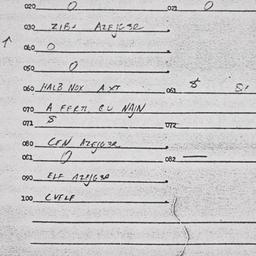 020 0 021 0
030 ZIEN AZEJGER
040 0
050 0
060 HALB NOX AXT 061 S
070 A FERTI. CU NAJN
071 S 072
080 CFN AZEJGER
081 0 082 —
090 ELF AZEJGER
100 CVFLF